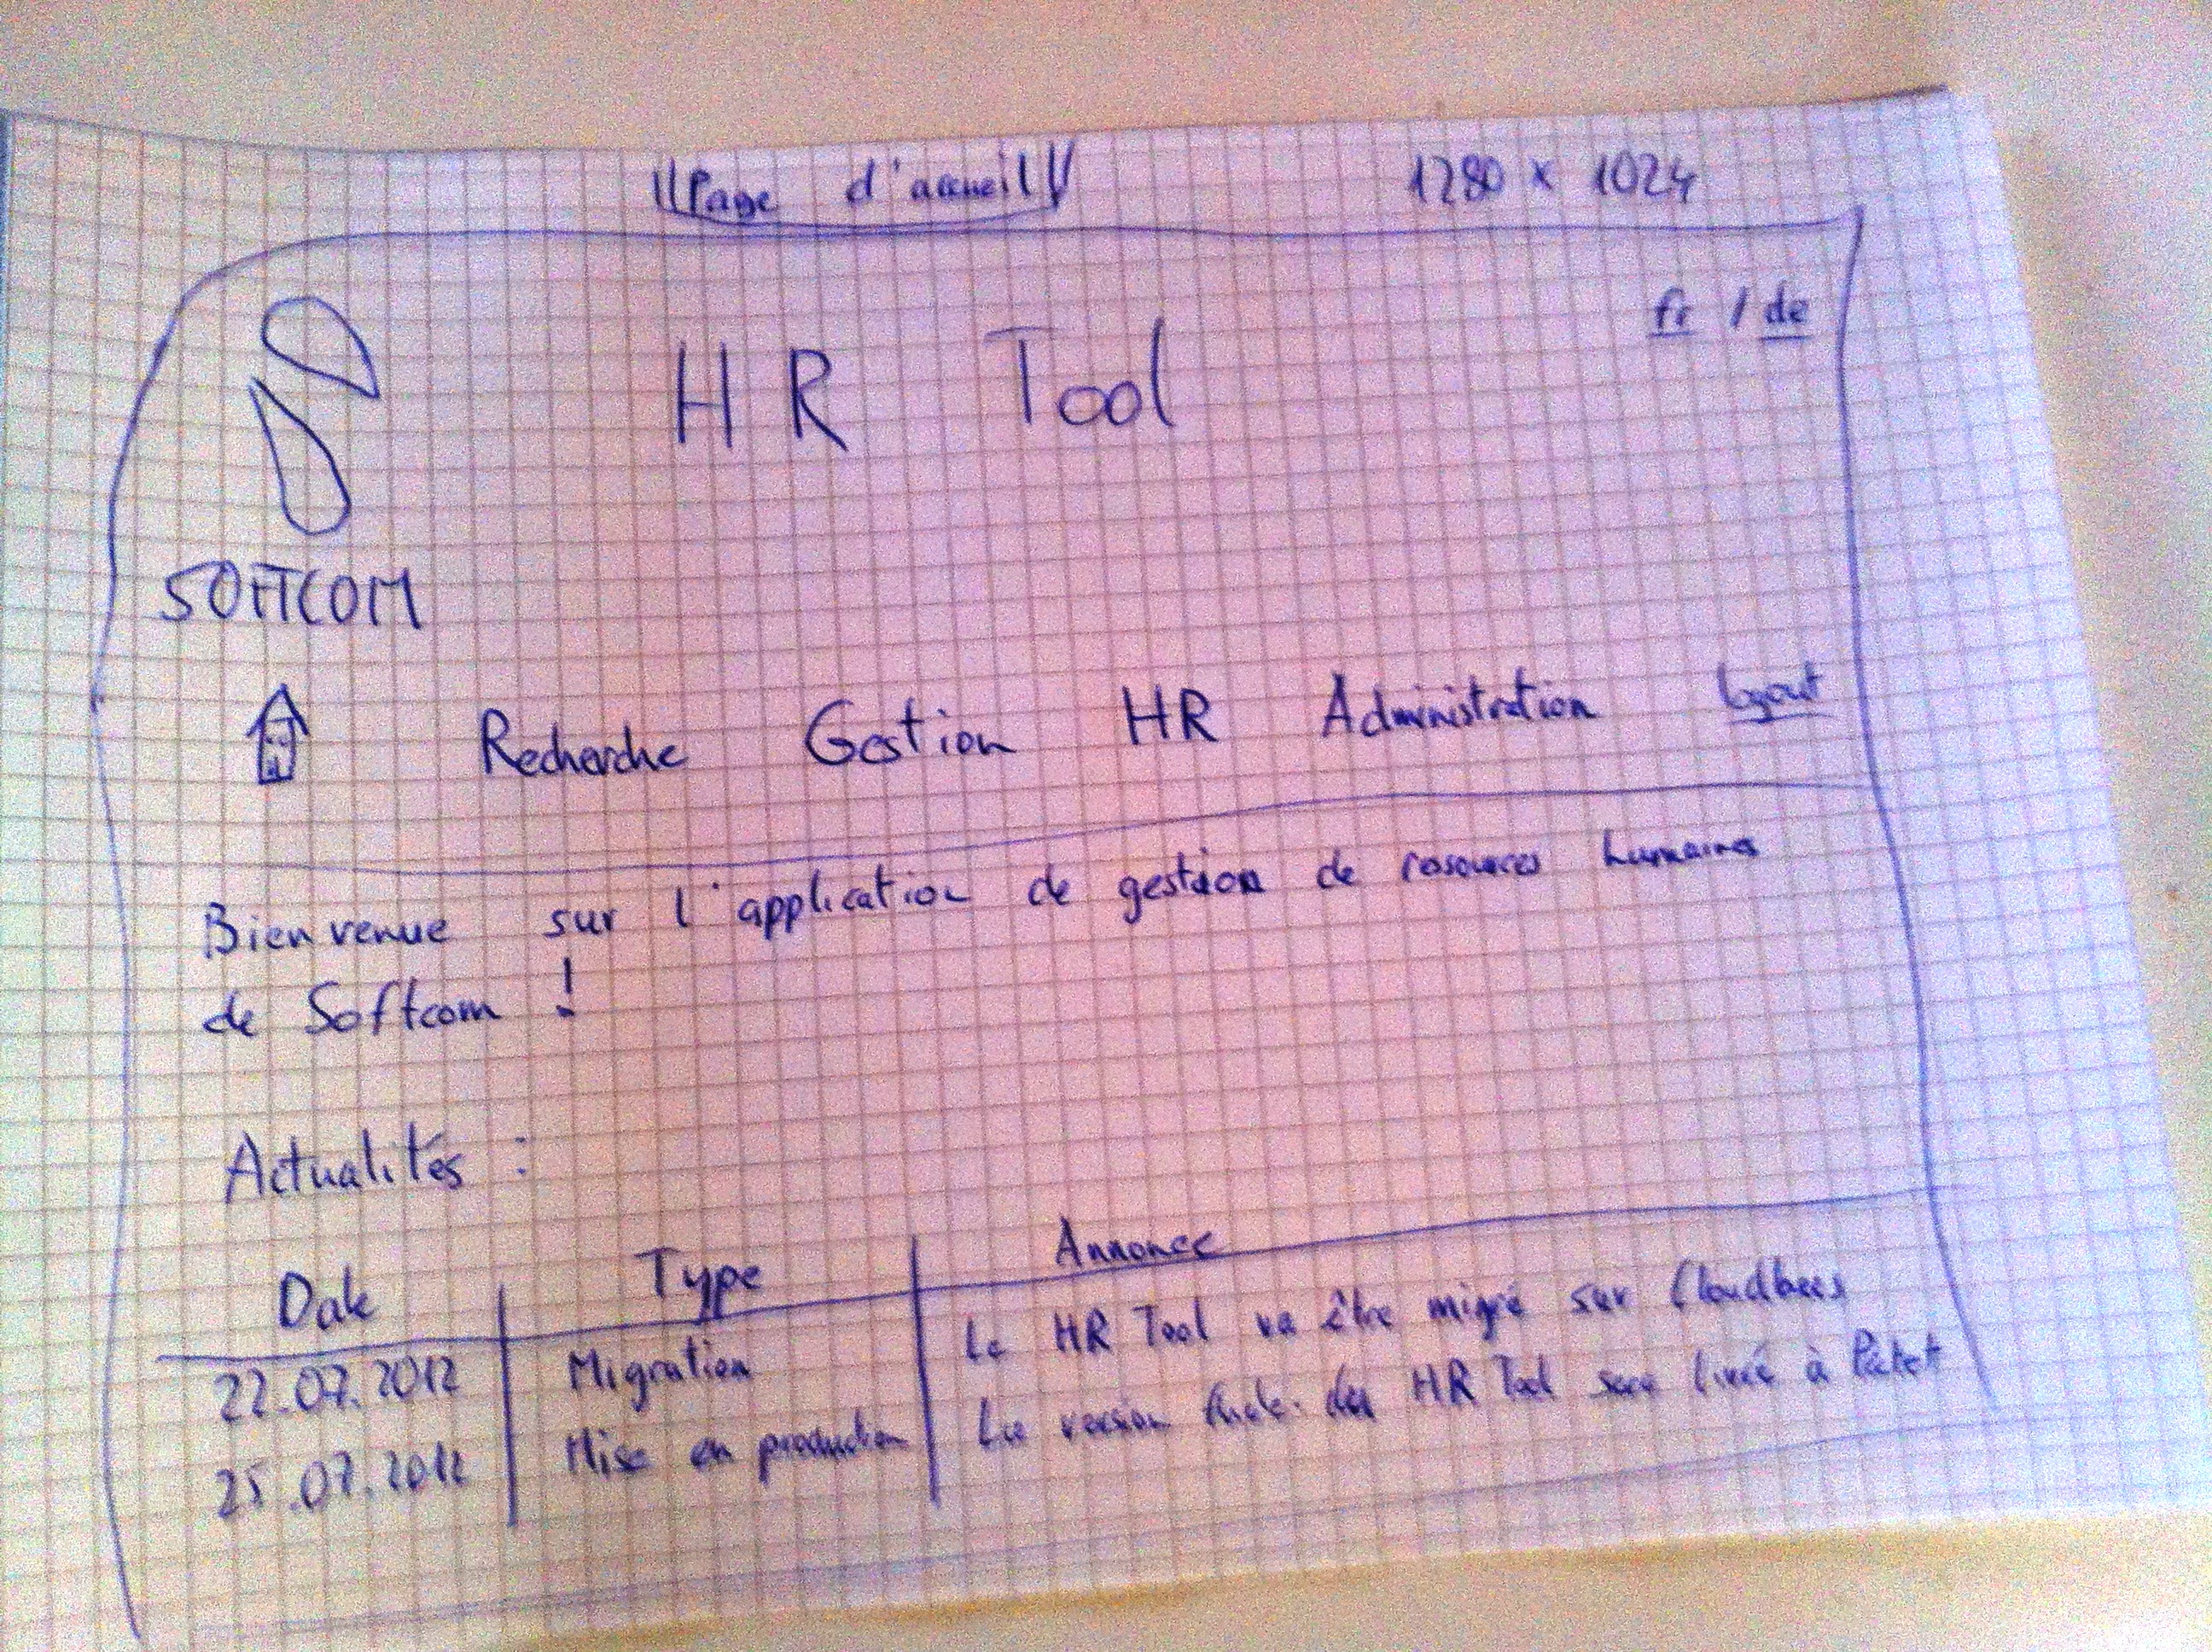 Page d'accueil 1280 x 1024
fr / de
HR Tool
SOFTCOM
Recherche Gestion HR Administration logout
Bienvenue sur l'application de gestion de resources humaines
de Softcom !
Actualités :
Date Type Annonce
22.07.2012 Migration Le HR Tool va être migré sur Cloudbees
25.07.2012 Mise en production La version finale du HR Tool sera livré à